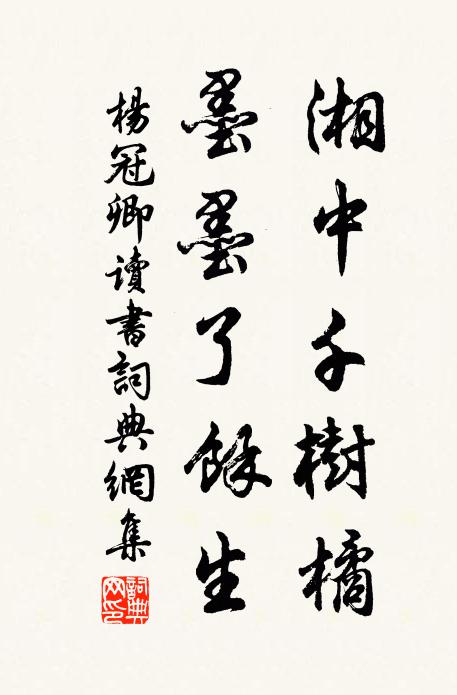 湘中千樹橘
墨墨了餘生
楊冠卿讀書詞典網集
詞典
网印